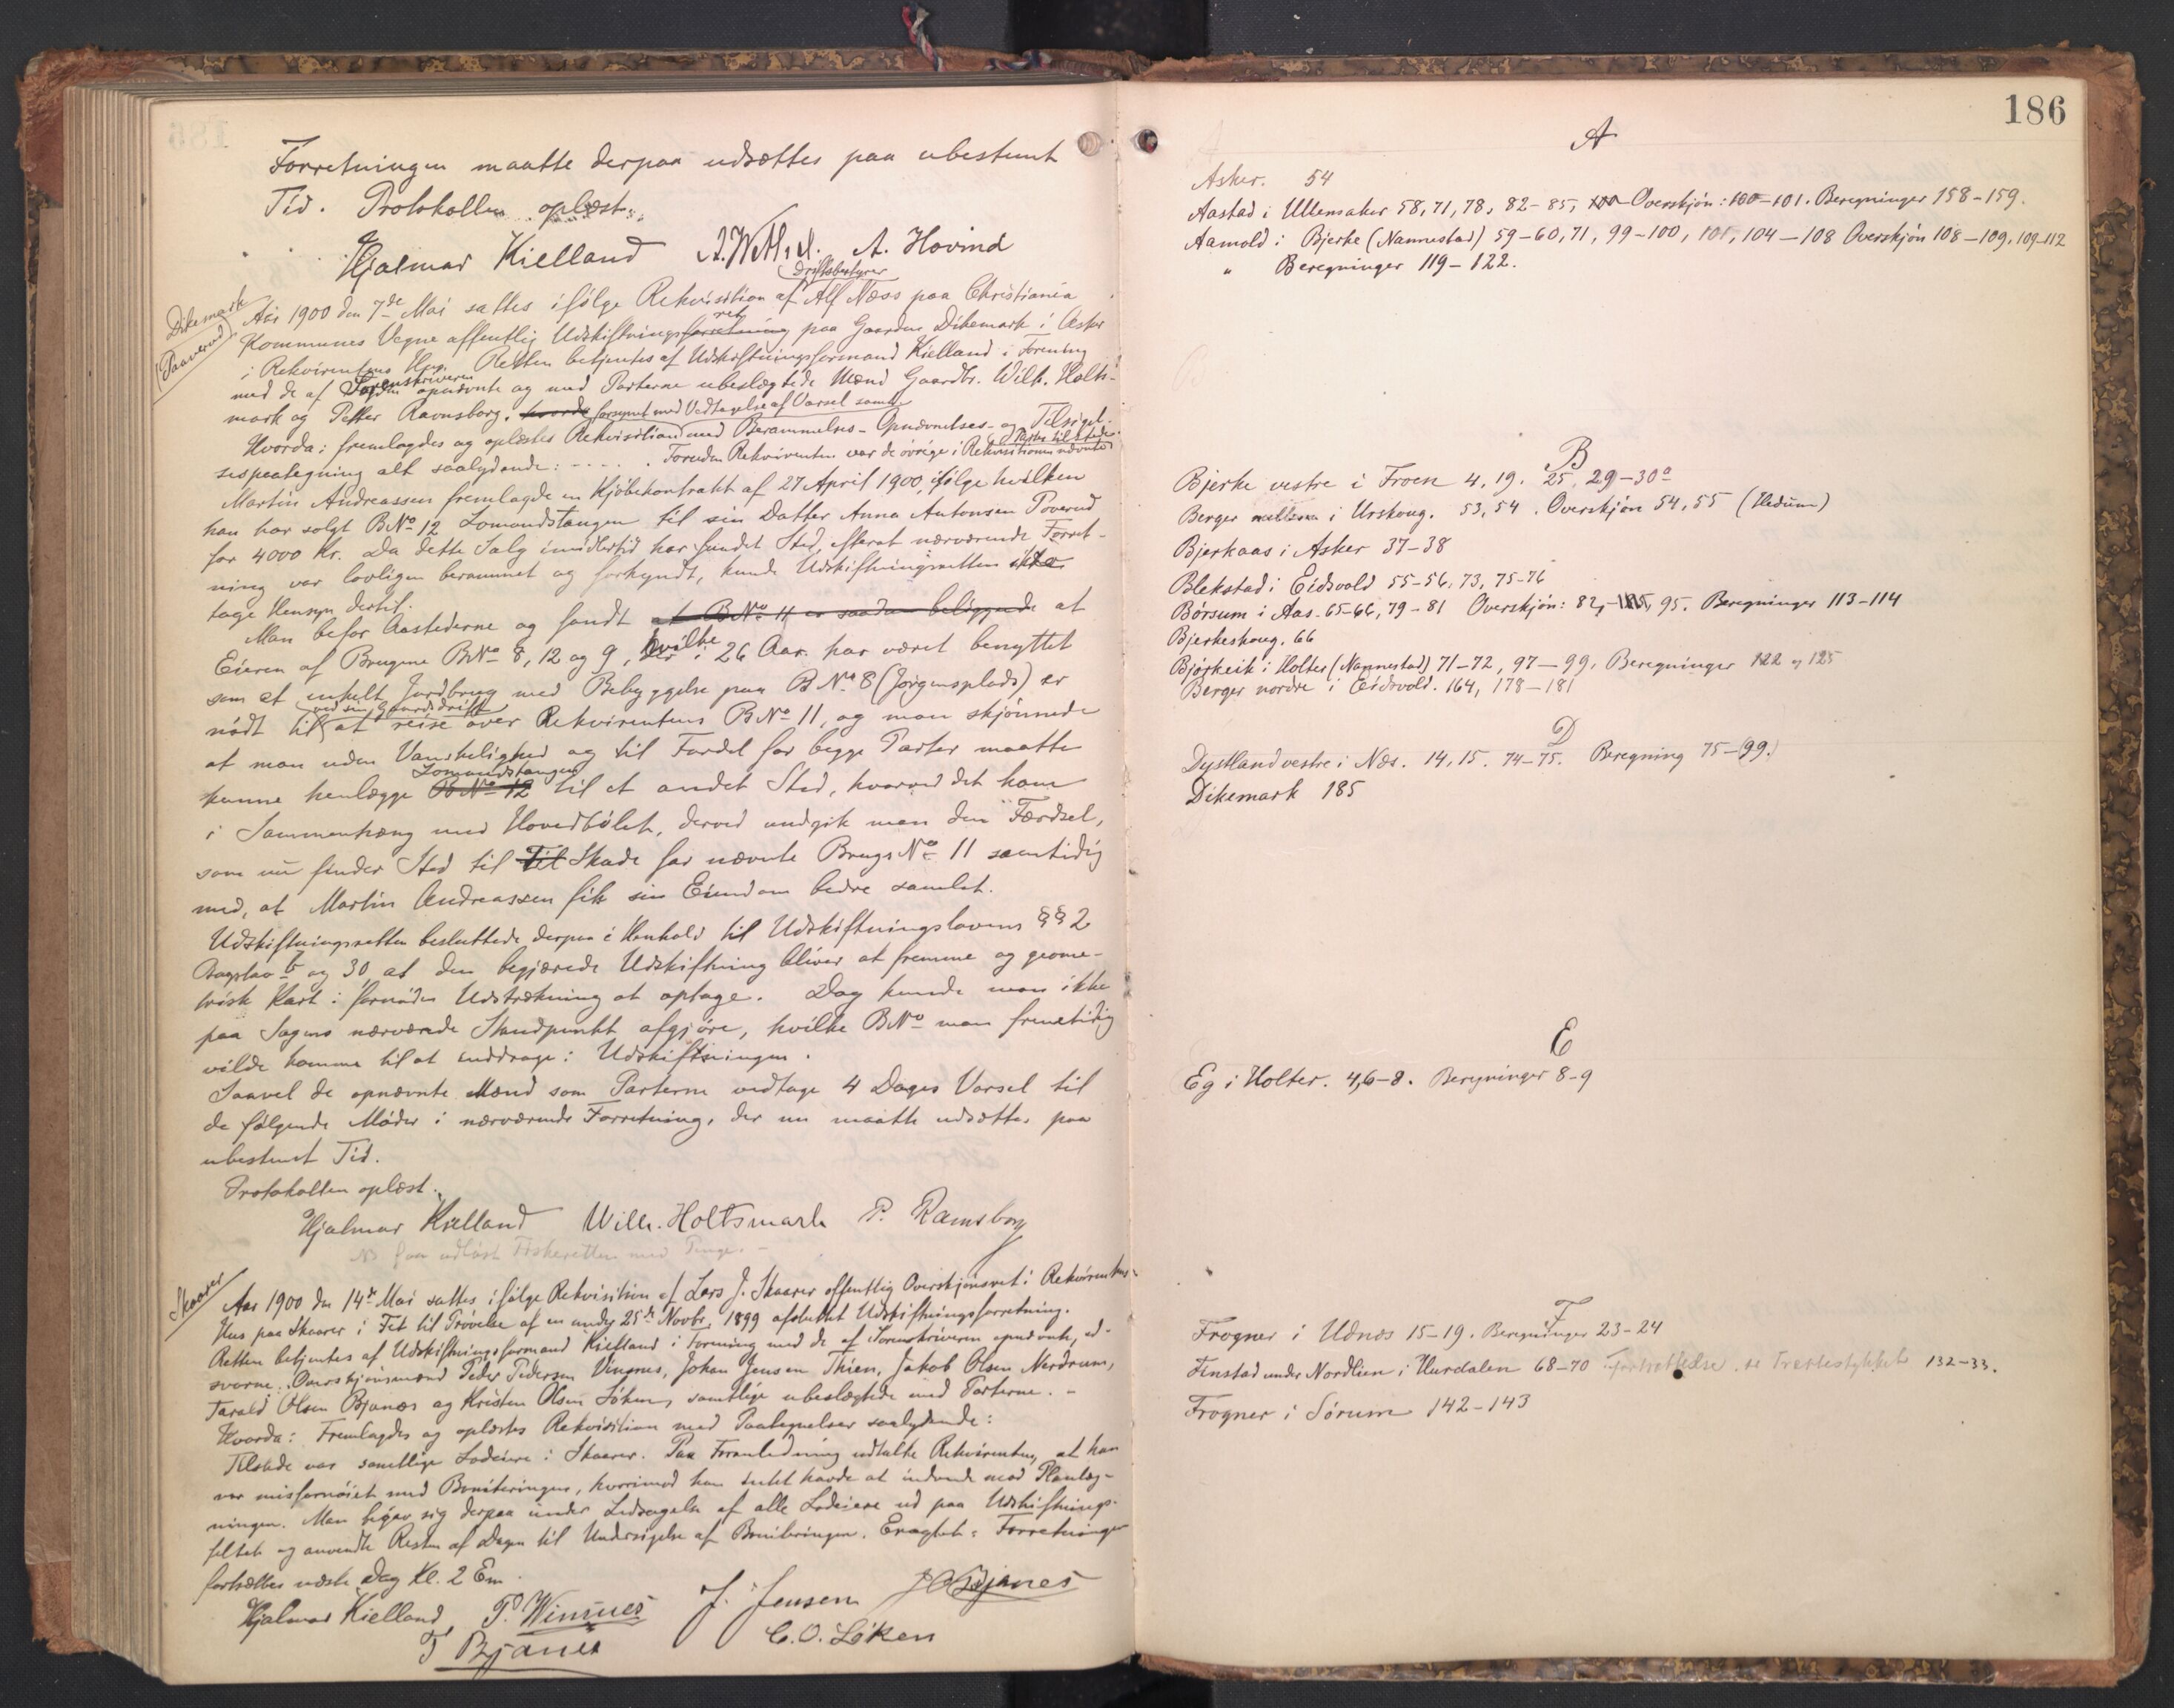 Forretningen maatte derpaa udsættes paa ubestemt
Tid. Protokollen oplæst.
Hjalmar Kielland A. Wethal. A. Hovind
Dikemark
(Paaverud)
driftsbestyrer
Aar 1900 den 7de Mai sattes ifölge Rekvisition af Alf Næss paa Christiania
ret
Kommunes Vegne offentlig Udskiftningsforretning paa Gaarden Dikemark i Asker
i Rekvirentens Hus. Retten betjentes af Udskiftningsformand Kielland i Forening
Sorenskriveren
med de af opnævnte og med Parterne ubeslægtede Mænd Gaardbr. Wilh. Holts-
mark og Petter Ravnsborg.
forsynet med Vedtagelse af Varsel samt
Hvorda: fremlagdes og oplæstes Rekvisition med Berammelses- Opnævnelses- og Tilsigel-
sespaategning alt saalydende: - - - - . Foruden Rekvirenten var de övrige i Rekvisitionen nævnte
Parter tilstede.
Martin Andreassen fremlagde en Kjöbekontrakt af 27 April 1900, ifölge hvilken
han har solgt BNo 12 Lomundstangen til sin Datter Anna Antonsen Poverud
for 4000 Kr. Da dette Salg imidlertid har fundet Sted, efterat nærværende Forret-
ning var lovligen berammet og forkyndt, kunde Udskiftningsretten ikke
tage Hensyn dertil.
Man befor Aastederne og fandt at BNo 11 er saadan beliggende at
Eieren af Brugene BNo 8, 12 og 9, hvilke i 26 Aar har været benyttet
som et enkelt Jordbrug med Bebyggelse paa BNo 8 (Jörgensplads) er
ved sin Gaardsdrift
nödt til at reise over Rekvirentens BNo 11, og man skjönnede
at man uden Vanskelighed og til Fordel for begge Parter maatte
Lomundstangen
kunne henlægge BNo 12 til et andet Sted, hvorved det kom
i Sammenhæng med Hovedbölet, derved undgik man den Færdsel,
som nu finder Sted til Til Skade for nævnte Brugs No 11 samtidig
med, at Martin Andreassen fik sin Eiendom bedre samlet.
Udskiftningsretten besluttede derpaa i Henhold til Udskiftningslovens §§ 2
Bogstav b og 30 at den begjærede Udskiftning bliver at fremme og geome-
trisk Kart i fornöden Udstrækning at optage. Dog kunde man ikke
paa Sagens nærværende Standpunkt afgjöre, hvilke BNo man fremtidig
vilde komme til at inddrage i Udskiftningen.
Saavel de opnævnte Mænd som Parterne vedtage 4 Dages Varsel til
de fölgende Möder i nærværende Forretning, der nu maatte udsættes paa
ubestemt Tid.
Protokollen oplæst.
Hjalmar Kielland Wilh. Holtsmark P. Ramsborg
NB faa udlöst Fiskeretten med Penge. -
Skaarer
Aar 1900 den 14de Mai sattes ifölge Rekvisition af Lars J. Skaarer offentlig Overskjönsret i Rekvirentens
Hus paa Skaarer i Fet til Prövelse af en under 25de Novbr. 1899 afsluttet Udskiftningsforretning.
Retten betjentes af Udskiftningsformand Kielland i Forening med de af Sorenskriveren opnævnte, ed-
svorne Overskjönsmænd Peder Pedersen Vingnes, Johan Jensen Thien, Jakob Olsen Nerdrum,
Tarald Olsen Bjanæs og Kristen Olsen Löken, samtlige ubeslægtede med Parterne. -
Hvorda: Fremlagdes og oplæstes Rekvisition med Paategnelser saalydende:
Tilstede var samtlige Lodeiere i Skaarer. Paa Foranledning udtalte Rekvirenten, at han
var misfornöiet med Boniteringen, hvorimod han intet havde at indvende mod Planlæg-
ningen. Man begav sig derpaa under Ledsagelse af alle Lodeiere ud paa Udskiftnings-
feltet og anvendte Resten af Dagen til Undersögelse af Boniteringen. Eragtet: Forretningen
fortsættes næste Dag Kl. 2 Em.
Hjalmar Kielland P. Winnes J. Jensen
T Bjanes C. O. Löken
186
A
Asker. 54
Aastad i Ullensaker 58, 71, 78, 82-85, 100 Overskjön: 100-101. Beregninger 158-159.
Aamold i Bjerke (Nannestad) 59-60, 71, 99-100, 101, 104-108 Overskjön 108-109, 109-112
" Beregninger 119-122.
B
Bjerke vestre i Froen 4, 19. 25, 29-30a
Berger mellem i Urskoug. 53, 54. Overskjön 54, 55 (Hedum)
Bjerkaas i Asker 37-38
Blekstad i Eidsvold 55-56, 73, 75-76
Börsum i Aas. 65-66, 79-81 Overskjön: 82, 95. Beregninger 113-114
Bjerkeskoug. 66
Björkeik i Holter (Nannestad) 71-72, 97-99, Beregninger 122 og 125
Berger nordre i Eidsvold. 164, 178-181
D
Dystland vestre i Næs. 14, 15. 74-75. Beregning 75-(99.)
Dikemark 185
E
Eg i Holter. 4, 6-8. Beregninger 8-9
F
Frogner i Udnæs 15-19. Beregninger 23-24
Finstad under Nordlien i Hurdalen 68-70 fortsættelse se Trættestykket 132-33.
Frogner i Sörum 142-143